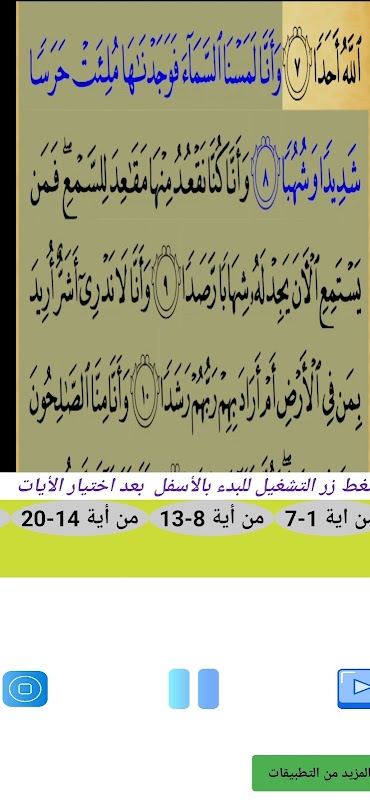 ٱللَّهُ أَحَدٗا ٧ وَأَنَّا لَمَسۡنَا ٱلسَّمَآءَ فَوَجَدۡنَٰهَا مُلِئَتۡ حَرَسٗا
شَدِيدٗا وَشُهُبٗا ٨ وَأَنَّا كُنَّا نَقۡعُدُ مِنۡهَا مَقَٰعِدَ لِلسَّمۡعِۖ فَمَن
يَسۡتَمِعِ ٱلۡأٓنَ يَجِدۡ لَهُۥ شِهَابٗا رَّصَدٗا ٩ وَأَنَّا لَا نَدۡرِيٓ أَشَرٌّ أُرِيدَ
بِمَن فِي ٱلۡأَرۡضِ أَمۡ أَرَادَ بِهِمۡ رَبُّهُمۡ رَشَدٗا ١٠ وَأَنَّا مِنَّا ٱلصَّٰلِحُونَ
غط زر التشغيل للبدء بالأسفل بعد اختيار الأيات
ن اية 1-7 من أية 8-13 من أية 14-20
المزيد من التطبيقات